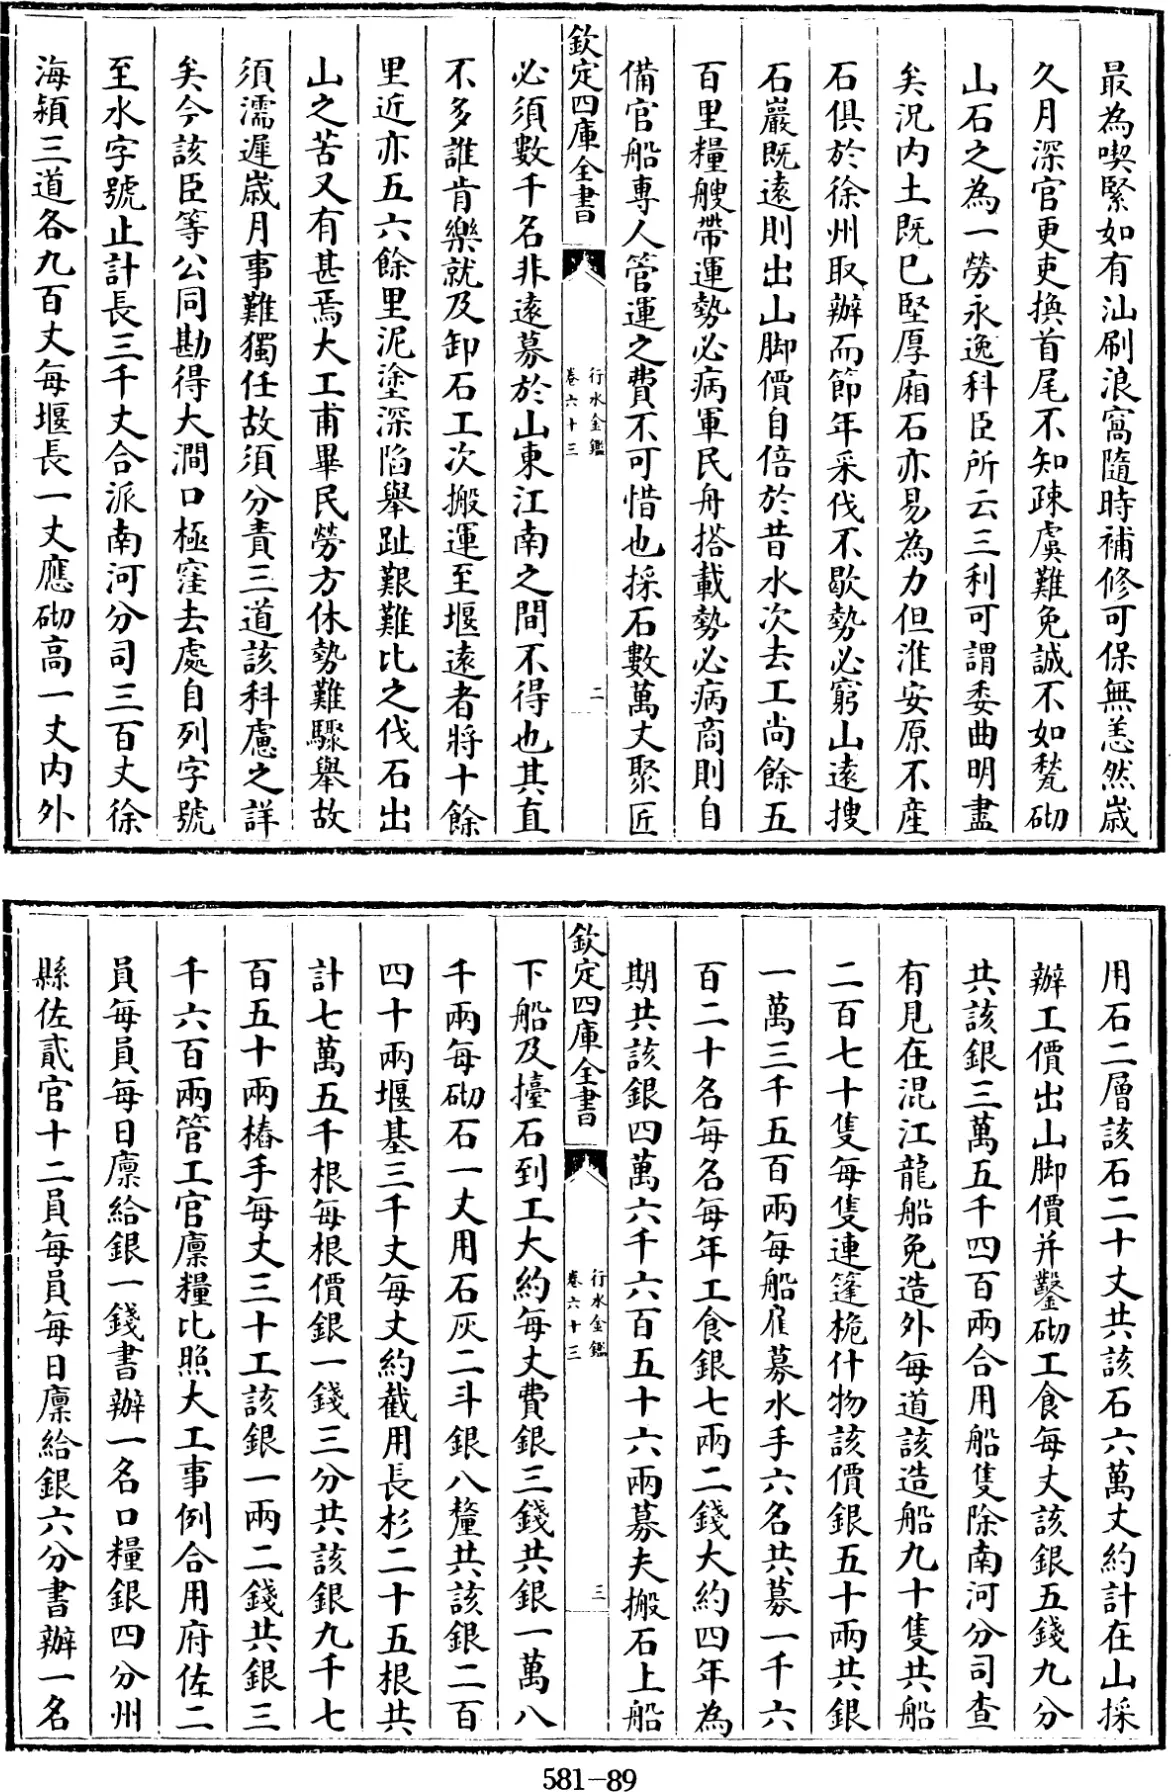 最為喫緊如有汕刷浪窩隨時補修可保無恙然歲
久月深官更吏換首尾不知疎虞難免誠不如甃砌
山石之為一勞永逸科臣所云三利可謂委曲明盡
矣況内土既已堅厚廂石亦易為力但淮安原不產
石俱於徐州取辦而節年采伐不歇勢必窮山遠搜
石巖既遠則出山脚價自倍於昔水次去工尚餘五
百里糧艘帶運勢必病軍民舟搭載勢必病商則自
備官船專人管運之費不可惜也採石數萬丈聚匠
欽定四庫全書
行水金鑑
卷六十三
二
必須數千名非遠募於山東江南之間不得也其直
不多誰肯樂就及卸石工次搬運至堰遠者將十餘
里近亦五六餘里泥塗深陷舉趾艱難比之伐石出
山之苦又有甚焉大工甫畢民勞方休勢難驟舉故
須濡遲歲月事難獨任故須分責三道該科慮之詳
矣今該臣等公同勘得大澗口極窪去處自列字號
至水字號止計長三千丈合派南河分司三百丈徐
海潁三道各九百丈每堰長一丈應砌高一丈内外
用石二層該石二十丈共該石六萬丈約計在山採
辦工價出山脚價并鑿砌工食每丈該銀五錢九分
共該銀三萬五千四百兩合用船隻除南河分司查
有見在混江龍船免造外每道該造船九十隻共船
二百七十隻每隻連篷桅什物該價銀五十兩共銀
一萬三千五百兩每船雇募水手六名共募一千六
百二十名每名每年工食銀七兩二錢大約四年為
期共該銀四萬六千六百五十六兩募夫搬石上船
欽定四庫全書
行水金鑑
卷六十三
三
下船及擡石到工大約每丈費銀三錢共銀一萬八
千兩每砌石一丈用石灰二斗銀八釐共該銀二百
四十兩堰基三千丈每丈約截用長杉二十五根共
計七萬五千根每根價銀一錢三分共該銀九千七
百五十兩樁手每丈三十工該銀一兩二錢共銀三
千六百兩管工官廪糧比照大工事例合用府佐二
員每員每日廪給銀一錢書辦一名口糧銀四分州
縣佐貳官十二員每員每日廪給銀六分書辦一名
581-89